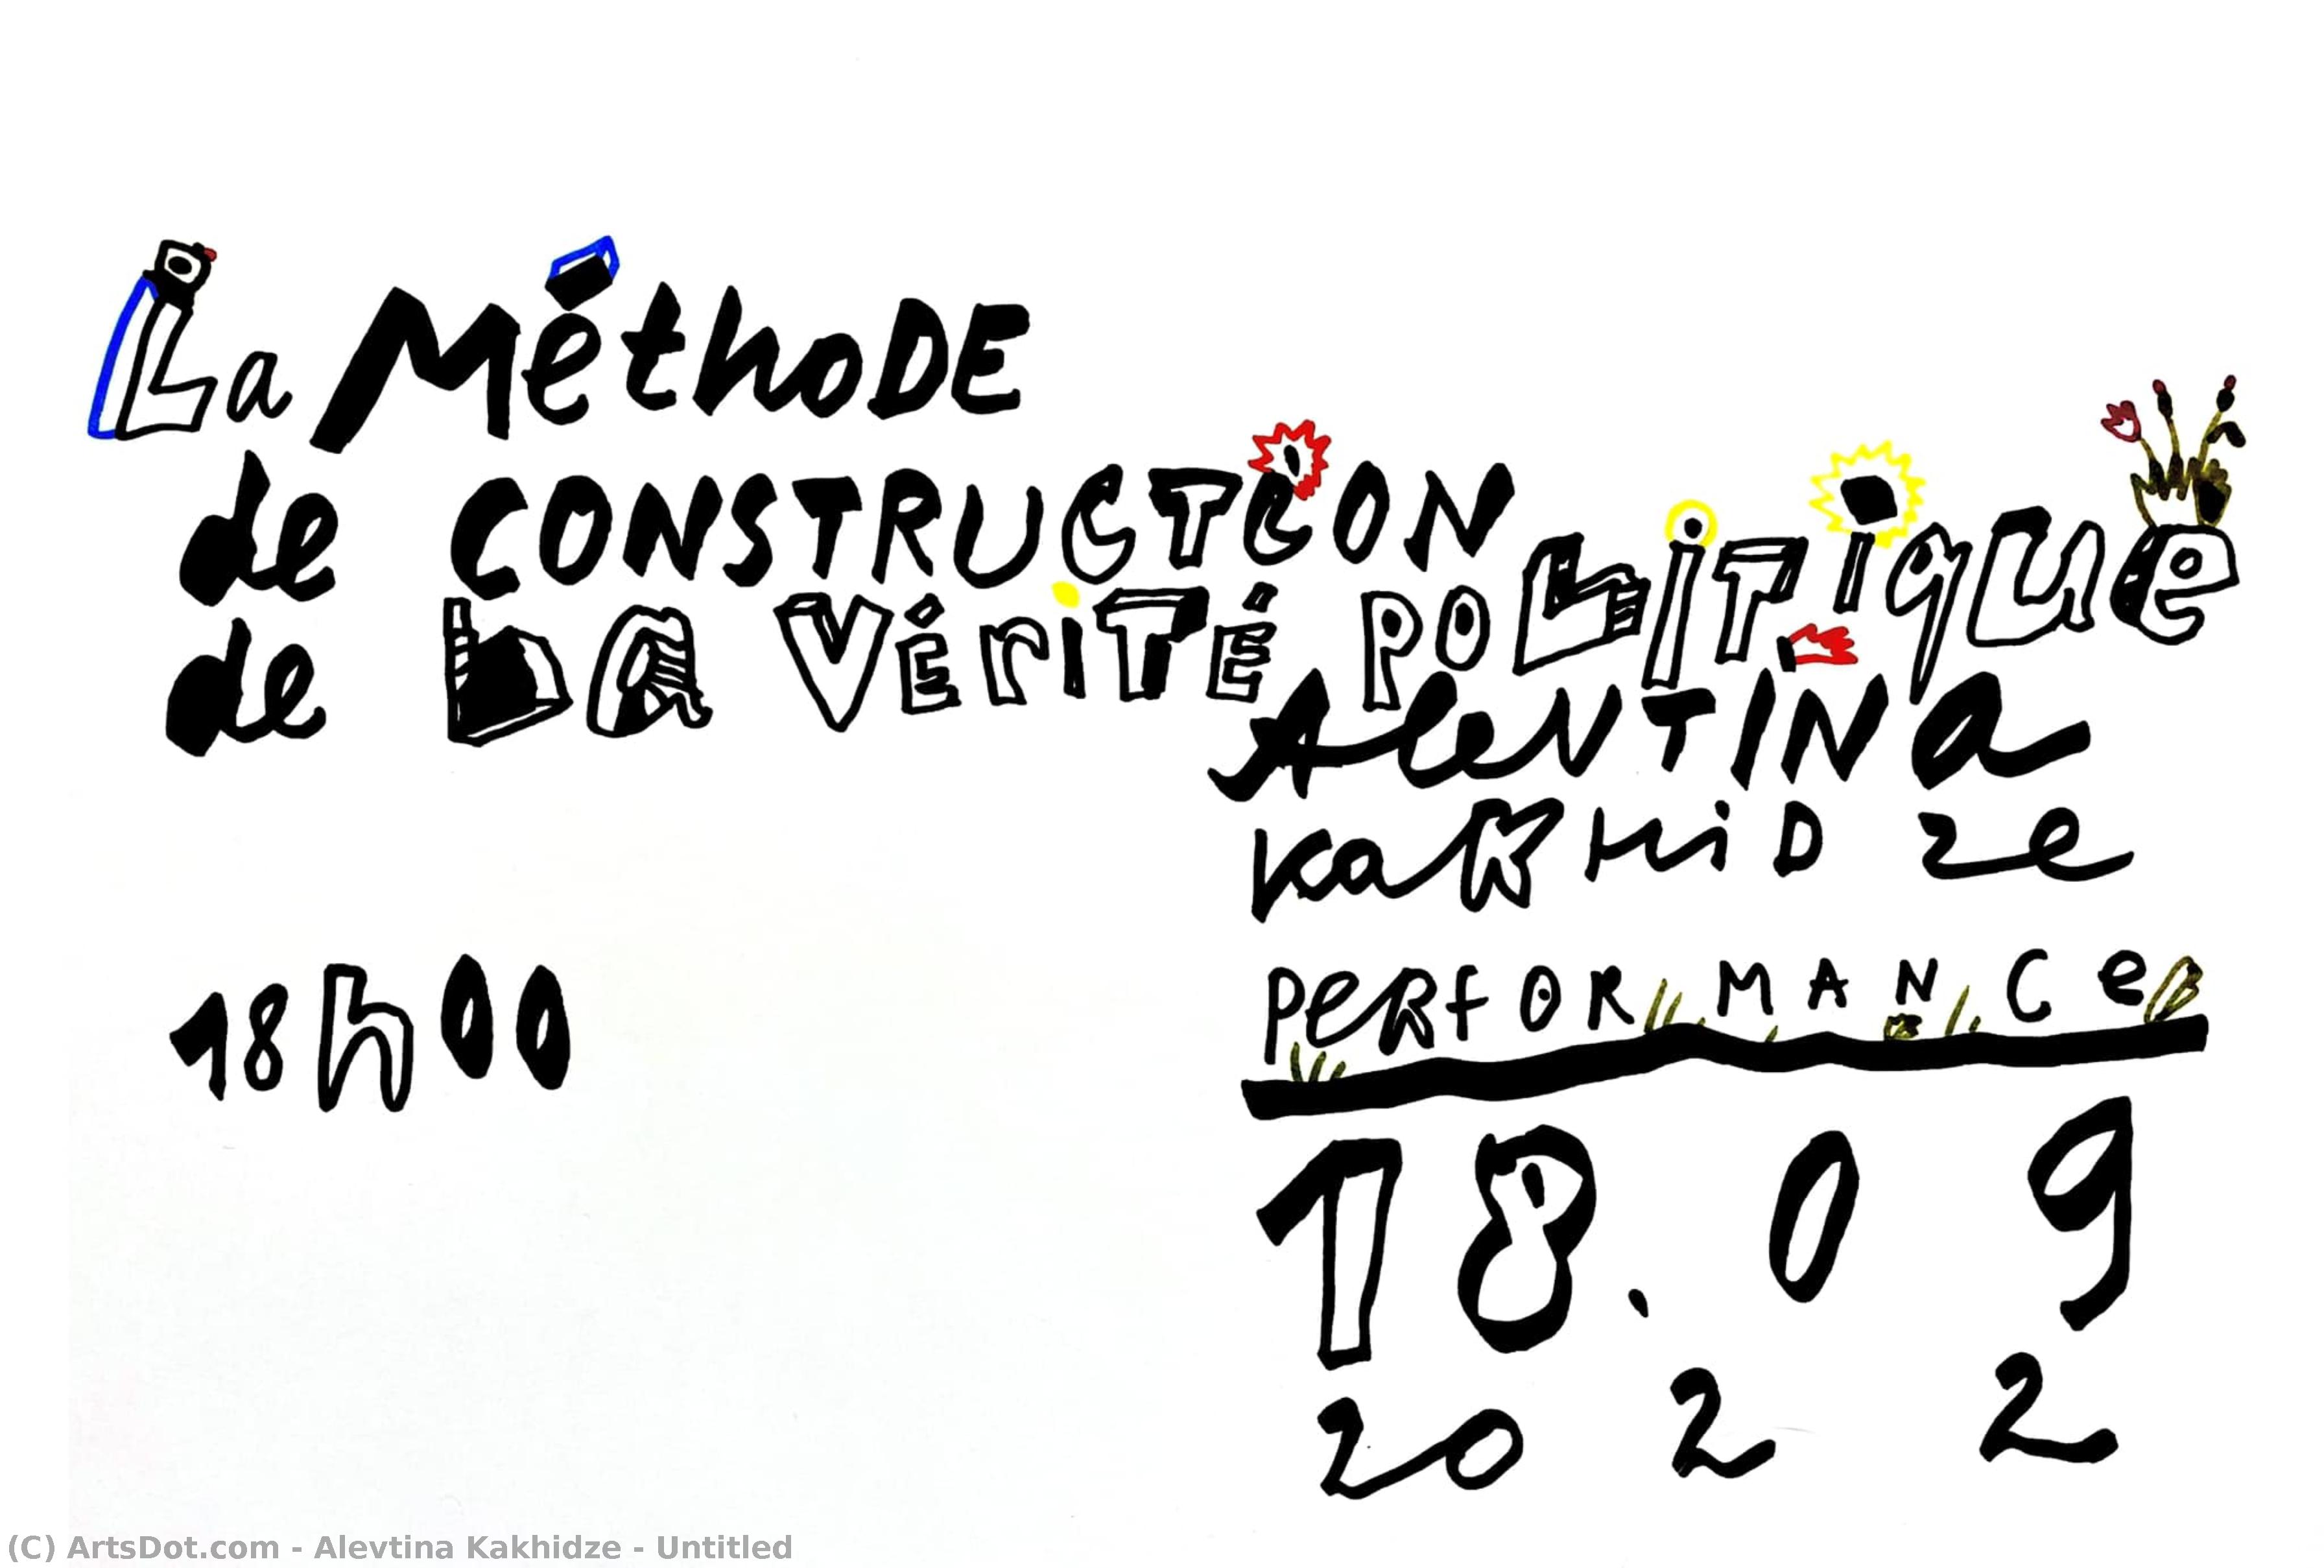 La Méthode
de CONSTRUCTiON
de La VÉriTÉ POLiTique
AlevTINa
KaKHiDze
PeRfORMANCe
18h00
18.09
2022
(C) ArtsDot.com - Alevtina Kakhidze - Untitled